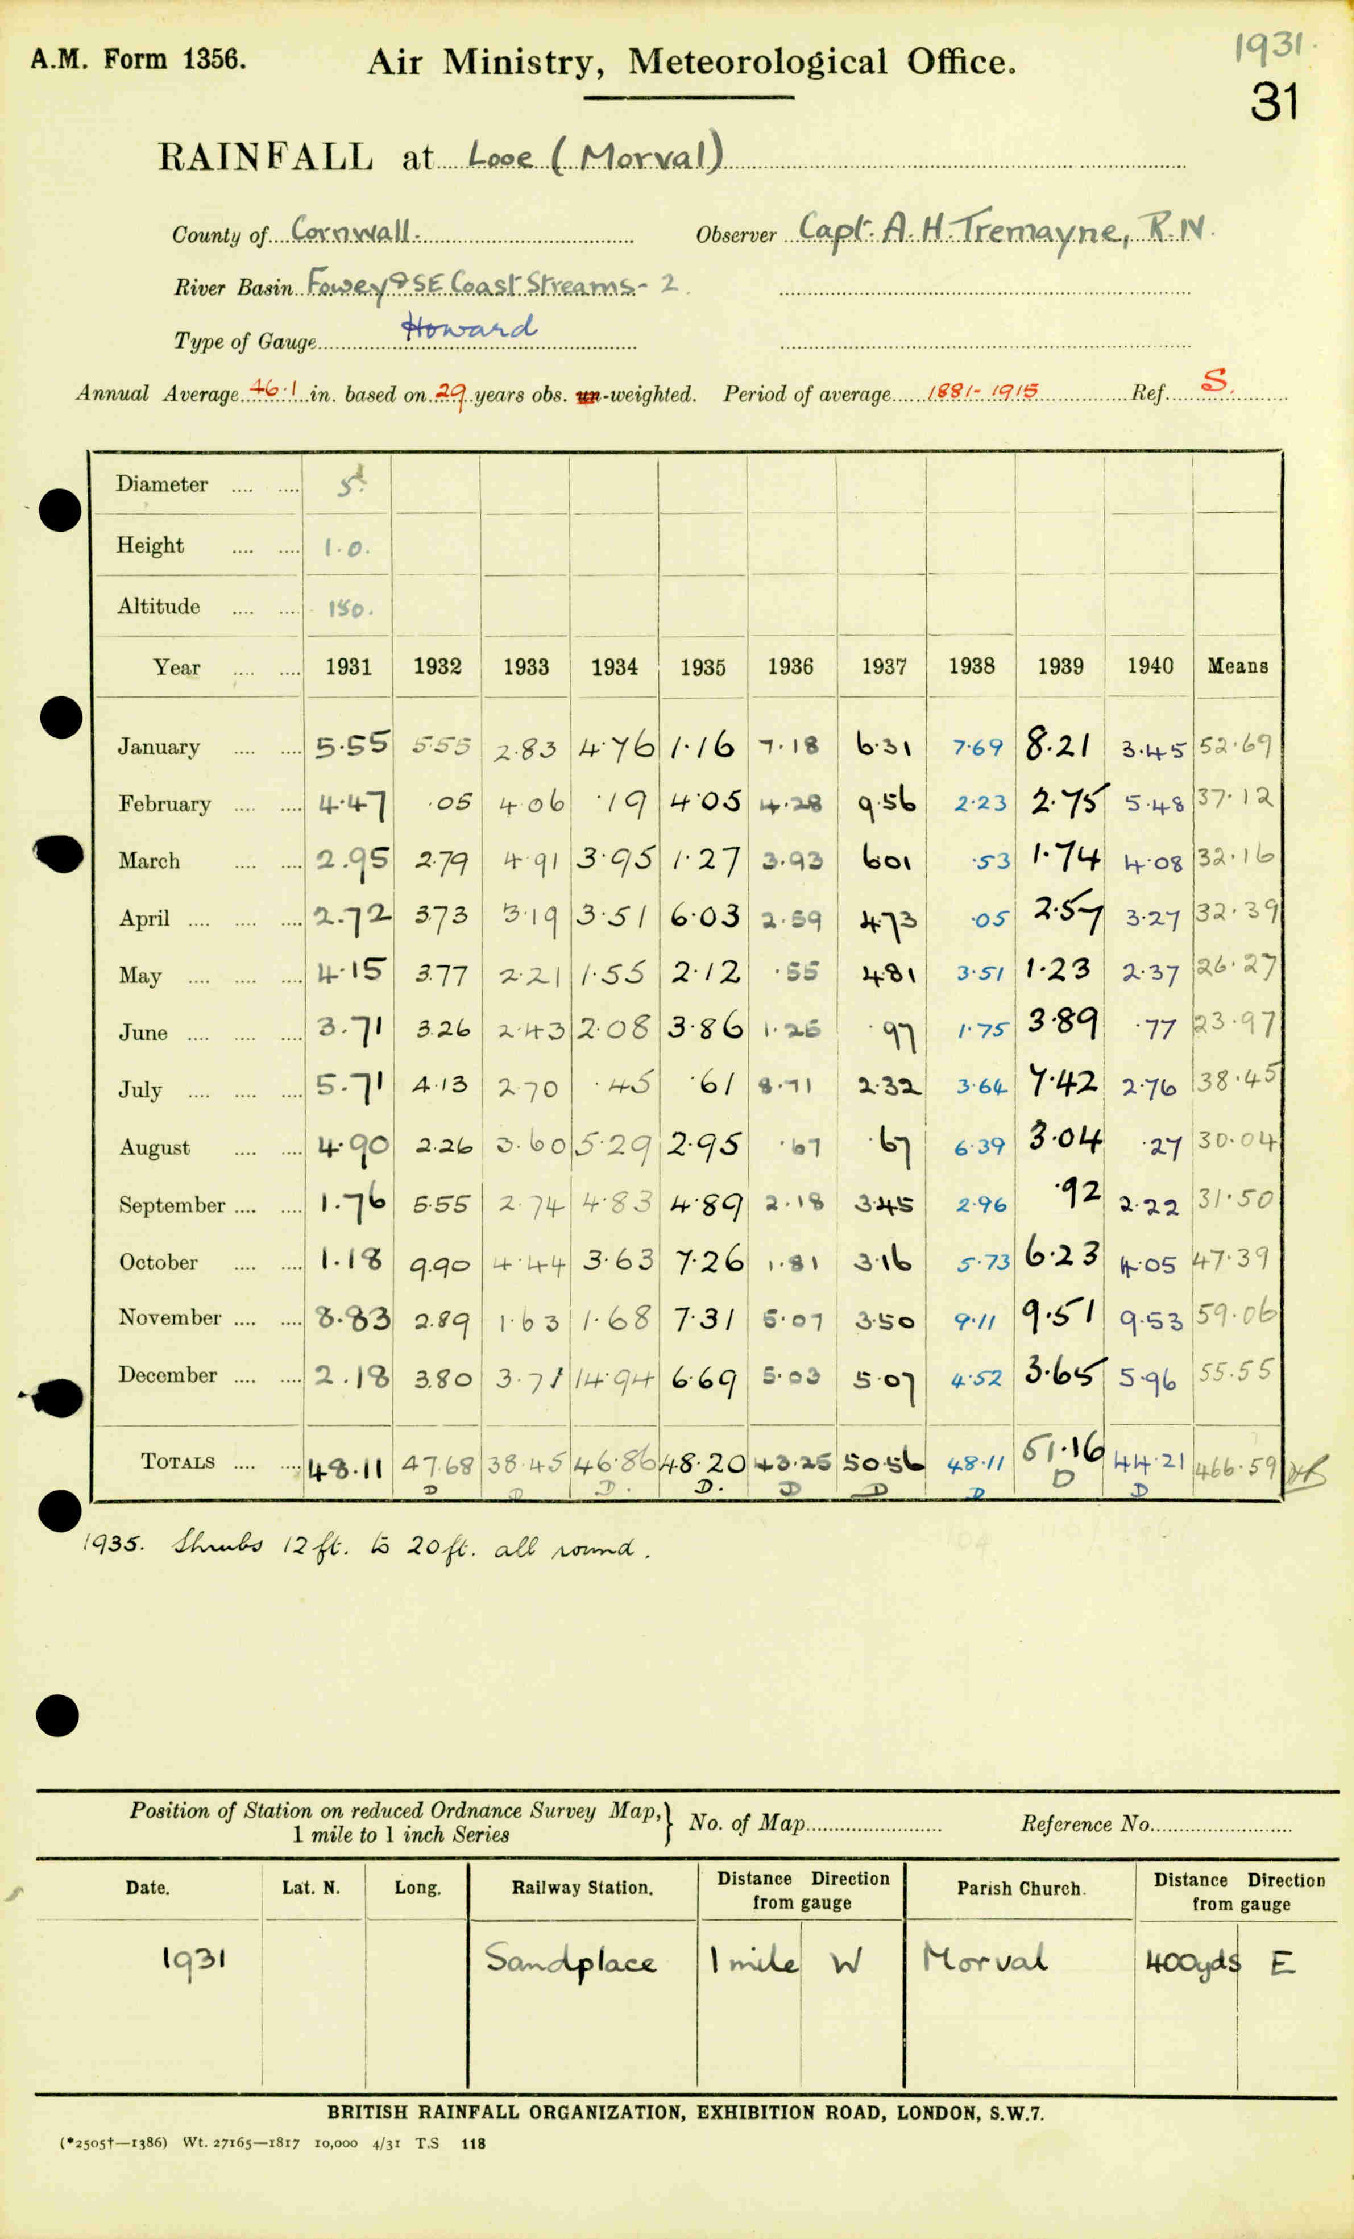 A.M. Form 1356. Air Ministry, Meteorological Office. 1931.
31
RAINFALL at Looe (Morval)
County of Cornwall. Observer Capt. A. H. Tremayne, R.N.
River Basin Fowey & SE Coast Streams - 2.
Type of Gauge Howard
Annual Average 46.1 in. based on 29 years obs. un-weighted. Period of average 1881-1915 Ref. S.
Diameter .... .... 5.
Height .... .... 1.0.
Altitude .... .... 150.
Year .... .... 1931 1932 1933 1934 1935 1936 1937 1938 1939 1940 Means
January .... .... 5.55 5.55 2.83 4.76 1.16 7.18 6.31 7.69 8.21 3.45 52.69
February .... .... 4.47 .05 4.06 .19 4.05 4.28 9.56 2.23 2.75 5.48 37.12
March .... .... 2.95 2.79 4.91 3.95 1.27 3.93 6.01 .53 1.74 4.08 32.16
April .... .... .... 2.72 3.73 3.19 3.51 6.03 2.59 4.73 .05 2.57 3.27 32.39
May .... .... .... 4.15 3.77 2.21 1.55 2.12 .55 4.81 3.51 1.23 2.37 26.27
June .... .... .... 3.71 3.26 2.43 2.08 3.86 1.26 .97 1.75 3.89 .77 23.97
July .... .... .... 5.71 4.13 2.70 .45 .61 8.71 2.32 3.64 7.42 2.76 38.45
August .... .... 4.90 2.26 3.60 5.29 2.95 .67 .67 6.39 3.04 .27 30.04
September .... .... 1.76 5.55 2.74 4.83 4.89 2.18 3.45 2.96 .92 2.22 31.50
October .... .... 1.18 9.90 4.44 3.63 7.26 1.81 3.16 5.73 6.23 4.05 47.39
November .... .... 8.83 2.89 1.63 1.68 7.31 5.07 3.50 9.11 9.51 9.53 59.06
December .... .... 2.18 3.80 3.71 14.94 6.69 5.03 5.07 4.52 3.65 5.96 55.55
TOTALS .... .... 48.11 47.68 38.45 46.86 48.20 43.26 50.56 48.11 51.16 44.21 466.59
D D D. D. D D D D D
1935. Shrubs 12 ft. to 20 ft. all round.
Position of Station on reduced Ordnance Survey Map, 1 mile to 1 inch Series } No. of Map Reference No.
Date. Lat. N. Long. Railway Station. Distance Direction from gauge Parish Church. Distance Direction from gauge
1931 Sandplace 1 mile W Morval 400yds E
BRITISH RAINFALL ORGANIZATION, EXHIBITION ROAD, LONDON, S.W.7.
(*2505†—1386) Wt. 27165—1817 10,000 4/31 T.S 118